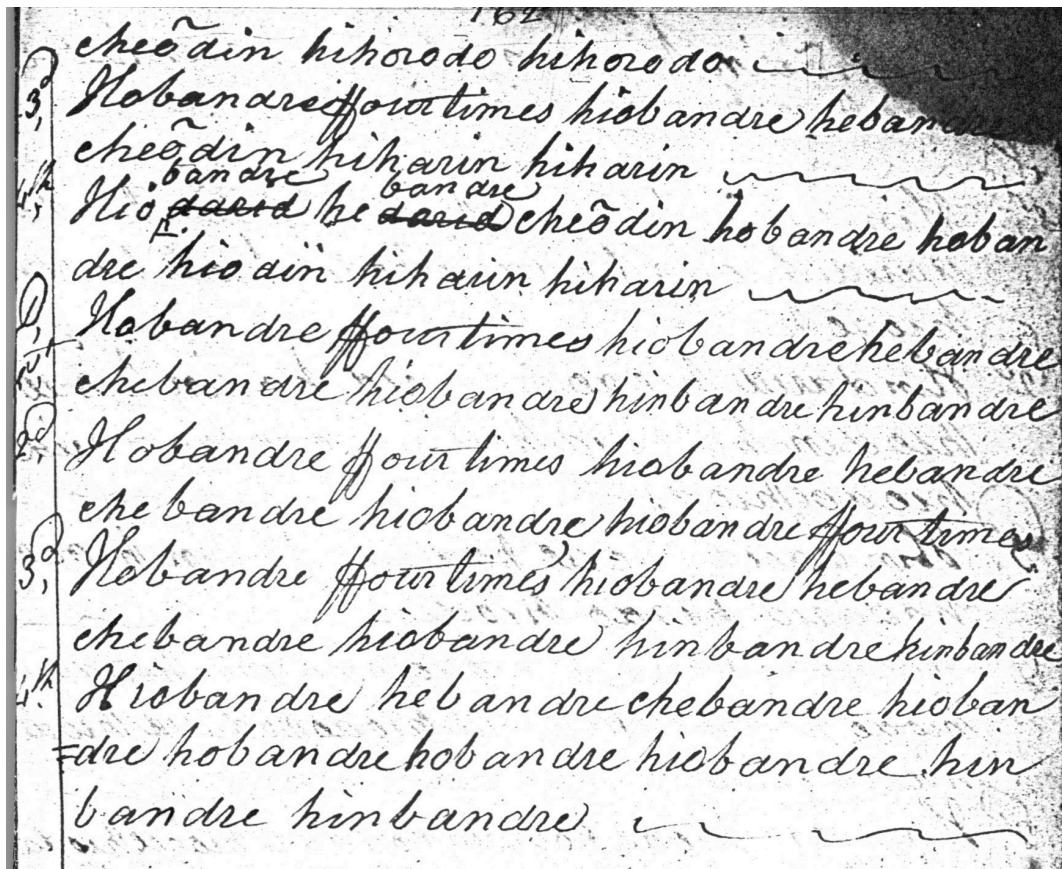 162
cheõdin hihorodo hihorodo
3d, Hobandre ffourtimes hiobandre hebandre
cheõdin hiharin hiharin
bandre bandre
4th, Hio darid he darid cheõdin hobandre hoban
dre hiodin hiharin hiharin
D,
1st Hobandre ffourtimes hiobandre hebandre
chebandre hiobandre hinbandre hinbandre
2d, Hobandre ffour times hiobandre hebandre
chebandre hiobandre hiobandre ffour times
3,d Hobandre ffour times hiobandre hebandre
chebandre hiobandre hinbandre hinbandre
4th. Hiobandre hebandre chebandre hioban
=dre hobandre hobandre hiobandre hin
bandre hinbandre